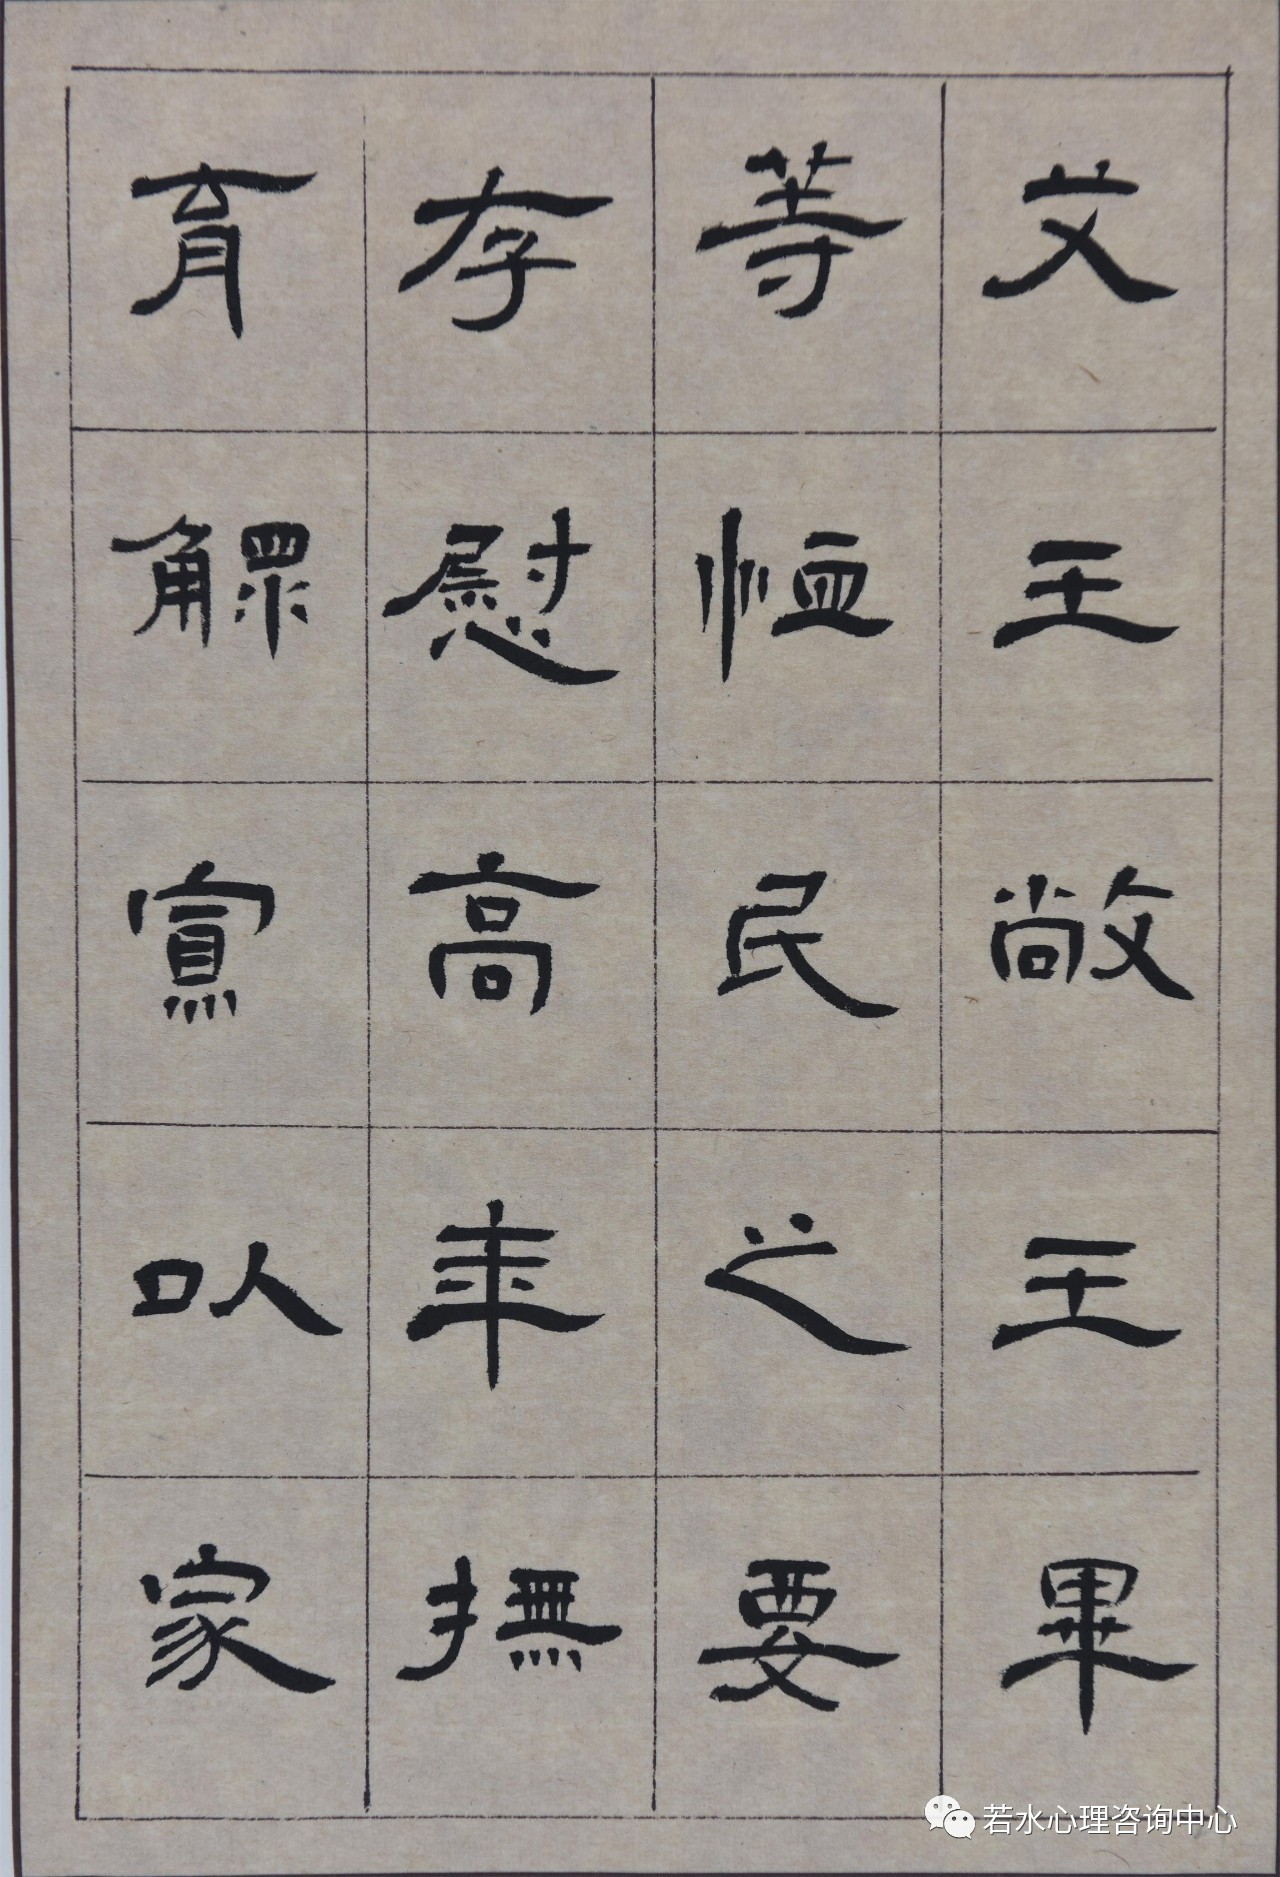 艾王敞王畢
等恤民之要
存慰高年撫
育鰥寡以家
若水心理咨询中心